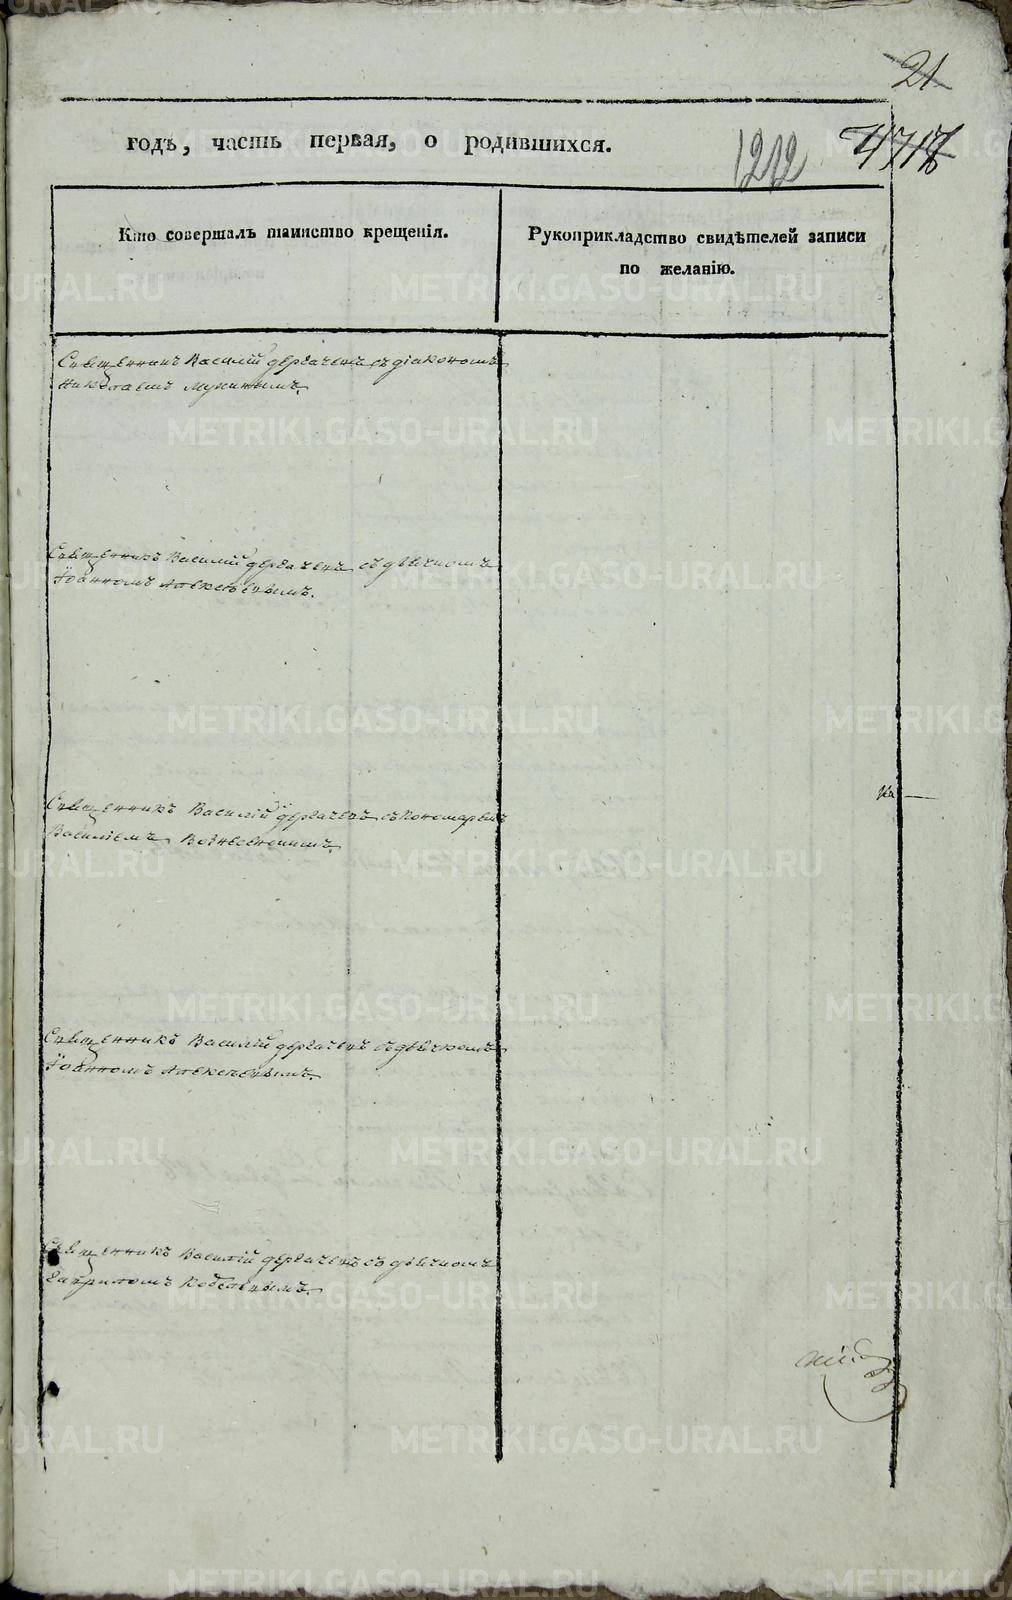 21
годъ, часть первая, о родившихся.
1212
Кто совершалъ таинство крещенія.
Рукоприкладство свидѣтелей записи
по желанію.
Священникъ Василій Дергачевъ съ діакономъ
Николаемъ Мухинымъ.
Священникъ Василій Дергачевъ съ дьячкомъ
Іоанномъ Алексѣевымъ.
Священникъ Василій Дергачевъ съ Пономаремъ
Василіемъ Вознесенскимъ.
Священникъ Василій Дергачевъ съ дьячкомъ
Іоанномъ Алексѣевымъ.
Священникъ Василій Дергачевъ съ дьячкомъ
Гавриломъ Кобелевымъ.
METRIKI.GASO-URAL.RU